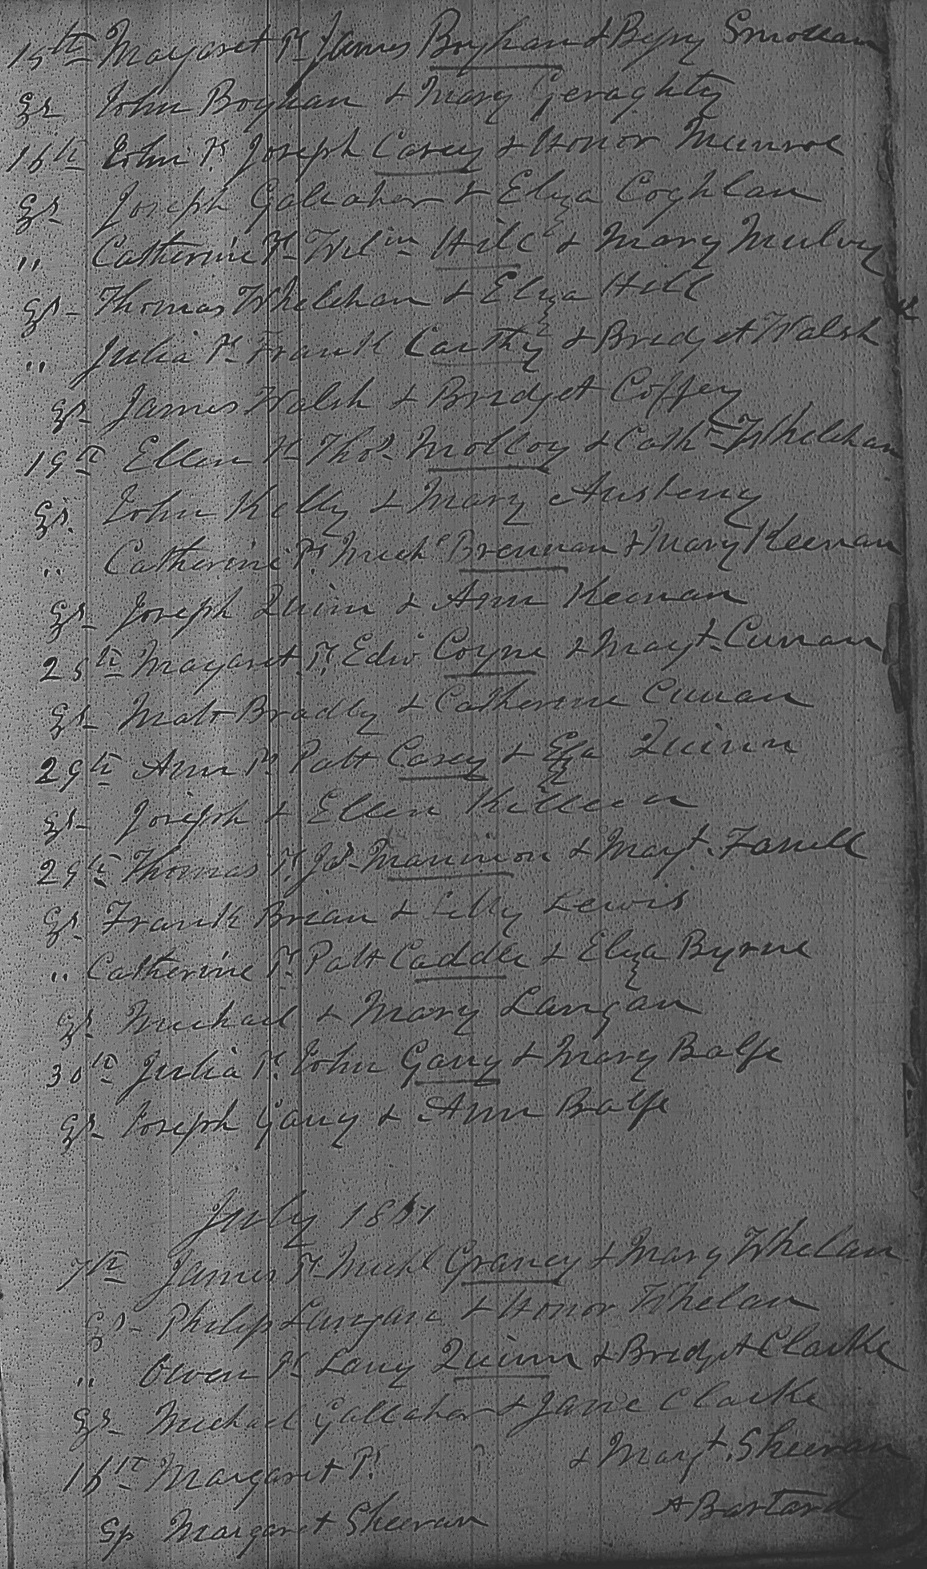 15th Margaret Pt James Boyhan & Bessy Smollan
Sps John Boyhan & Mary Geraghty
16th John Pt Joseph Casey & Honor Munroe
Sps Joseph Gallaher & Eliza Coghlan
" Catherine Pt Willm Hill & Mary Mulvy
Sps Thomas Whelehan & Eliza Hill
" Julia Pt Frank Carthy & Bridget Walsh
Sps James Walsh & Bridget Coffey
19th Ellen Pt Thos Molloy & Cathne Whelehan
Sps John Kelly & Mary
" Catherine Pt Michl Brennan & Mary Keenan
Sps Joseph Quinn & Ann Keenan
25th Margaret Pt Edwd Coyne & Margt Curran
Sps Matt Bradly & Catherine Curran
29th Ann Pt Patt Casey & Eliza Quinn
Sps Joseph & Ellen Killeen
29th Thomas Pt Jas Mannion & Margt Farrell
Sps Frank Brian & Lewis
" Catherine Pt Patt Caddle & Eliza Byrne
Sps Michael & Mary Langan
30th Julia Pt John Garry & Mary Balfe
Sps Joseph Garry & Ann Balfe
July 1861
7th James Pt Michl Graney & Mary Whelan
Sps Philip Langan & Honor Whelan
" Owen Pt Lary Quinn & Bridget Clarke
Sps Michael Gallaher & Jane Clarke
16th Margaret Pt ? & Margt Sheeran
Sp Margaret Sheeran A Bastard